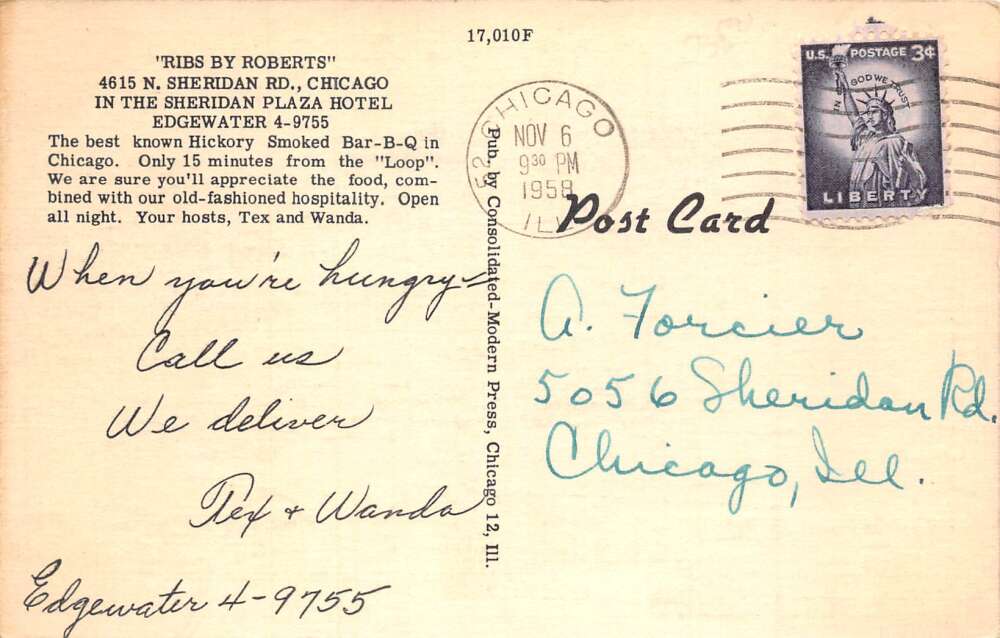 17,010F
"RIBS BY ROBERTS"
4615 N. SHERIDAN RD., CHICAGO
IN THE SHERIDAN PLAZA HOTEL
EDGEWATER 4-9755
The best known Hickory Smoked Bar-B-Q in
Chicago. Only 15 minutes from the "Loop".
We are sure you'll appreciate the food, com-
bined with our old-fashioned hospitality. Open
all night. Your hosts, Tex and Wanda.
When you're hungry-
Call us
We deliver
Tex + Wanda
Edgewater 4-9755
Pub. by Consolidated-Modern Press, Chicago 12, Ill.
CHICAGO
52
NOV 6
9 30 PM
1958
ILL
U.S. POSTAGE 3¢
IN GOD WE TRUST
LIBERTY
Post Card
A. Forcier
5056 Sheridan Rd.
Chicago, Ill.